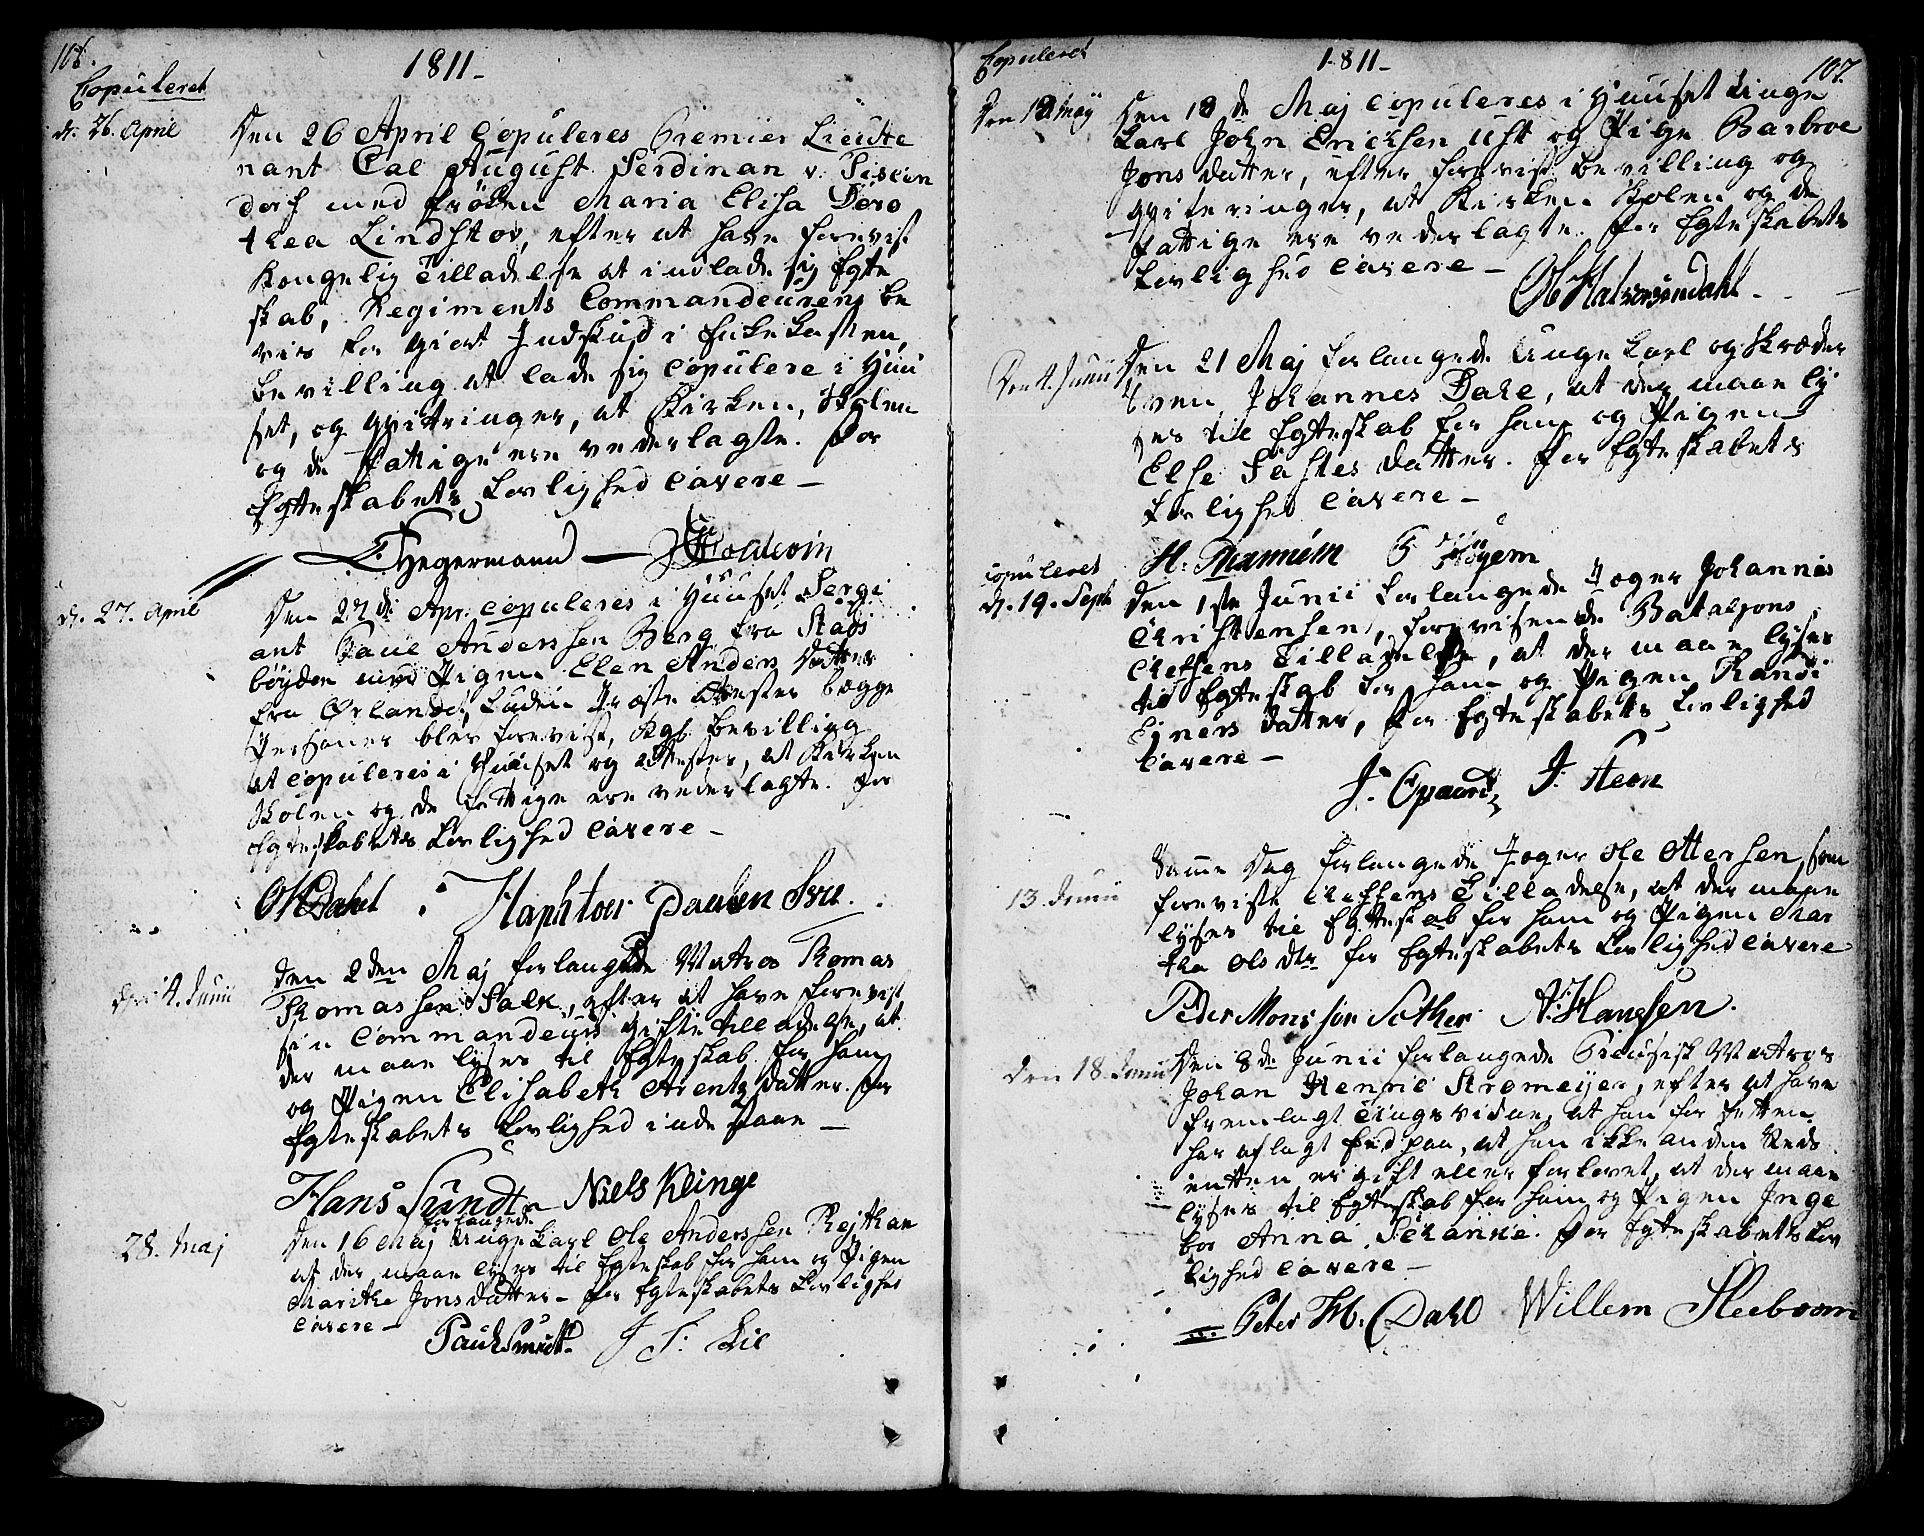 106.
1811_
Copuleret
d. 26. April
Den 26 April Copuleres Premier Lieute
nant Cal August Ferdinan v.
dorf med Frøken Maria Elisa Doro
thea Lindstov, efter at have foreviist
Kongelig Tilladelse at indlade sig Egte
skab, Regiments Commandeurens be
viis for giort Indskud i Enkekassen,
bevilling at lade sig copulere i Huu
set, og qvitringer, at Kirken, Skolen
og de Fattige ere vederlagte. For
Egteskabets Lovlighed cavere _
Hegermann — Coldevin
d. 27. April
Den 27de Apr. copuleres i Huuset Sergi
ant Paul Anderssen Berg fra Stads
böyden med Pigen Elen Anders Datter
fra Ørlandet, Præste Attester begge
Personer blev foreviist, Kgl. bevilling
at copuleres i Huuset og Attester, at Kirken
Skolen og de Fattige ere vederlagte. For
Egteskabets Lovlighed cavere _
OHDahl Haphtoer Paulsen
Den 4. Junii
Den 2den Maj forlangede Matros Thomas
Thomassen Falk, efter at have foreviist
sin Commandeurs Giftetilladelse, at
der maae lyses til Egteskab for ham
og Pigen Elisabeth Arentz Datter. For
Egteskabets Lovlighed indestaae _
Hans Sundt Niels Klinge
28. Maj
forlangede
Den 16 Maj Unge Karl Ole Anderssen Rejthan
at der maae lyses til Egteskab for ham og Pigen
Marithe Jons Datter _ For Egteskabets Lovlighed
cavere _
Paul Smidt J F: Lie
107.
Copuleret
1811_
Den 18 May
Den 18de Maj copuleres i Huuset Unge
Karl John Ericksen Ust og Pige Barbroe
Jons Datter, efter foreviist bevilling og
qviteringer, at Kirken Skolen og de
Fattige ere vederlagte. For Egteskabets
Lovlighed cavere _
Ol Halvorsen Dahl.
Den 4. Junii
Den 21 Maj forlangede Unge Karl og Skræder
Sven Johannes Dahl, at der maae ly
ses til Egteskab for ham og Pigen
Else Fastes Datter. For Egteskabets
Lovlighed cavere _
H. G
copuleret
d. 19. Sept
Den 1ste Junii forlangede Jæger Johannes
Christensen, forevisende Bataljons
Chefens Tilladelse, at der maae lyses
til Egteskab for ham og Pigen Randi
Ejners Datter, for Egteskabets Lovlighed
cavere _
J. J: Steen
13. Junii
Samme Dag forlangede Jæger Ole Ottersen, som
foreviste Cheffens Tilladelse, at der maae
lyses til Egteskab for ham og Pigen Mar
tha Ols Dtr for Egteskabets Lovlighed cavere
Peder Monssen Sæther A: Hanssen.
Den 18. Junii
Den 8de Junii forlangede Preusisk Matros
Johan Henric Stromeyer, efter at have
fremlagt Tingsvidne, at han for Retten
har aflagt Eed paa, at han ikke anden Steds
enten er gift eller forlovet, at der maae
lyses til Egteskab for ham og Pigen Inge
bor Anna Schanke. For Egteskabets Lov
lighed cavere _
Peter M. Dahl Willem Sleeboom